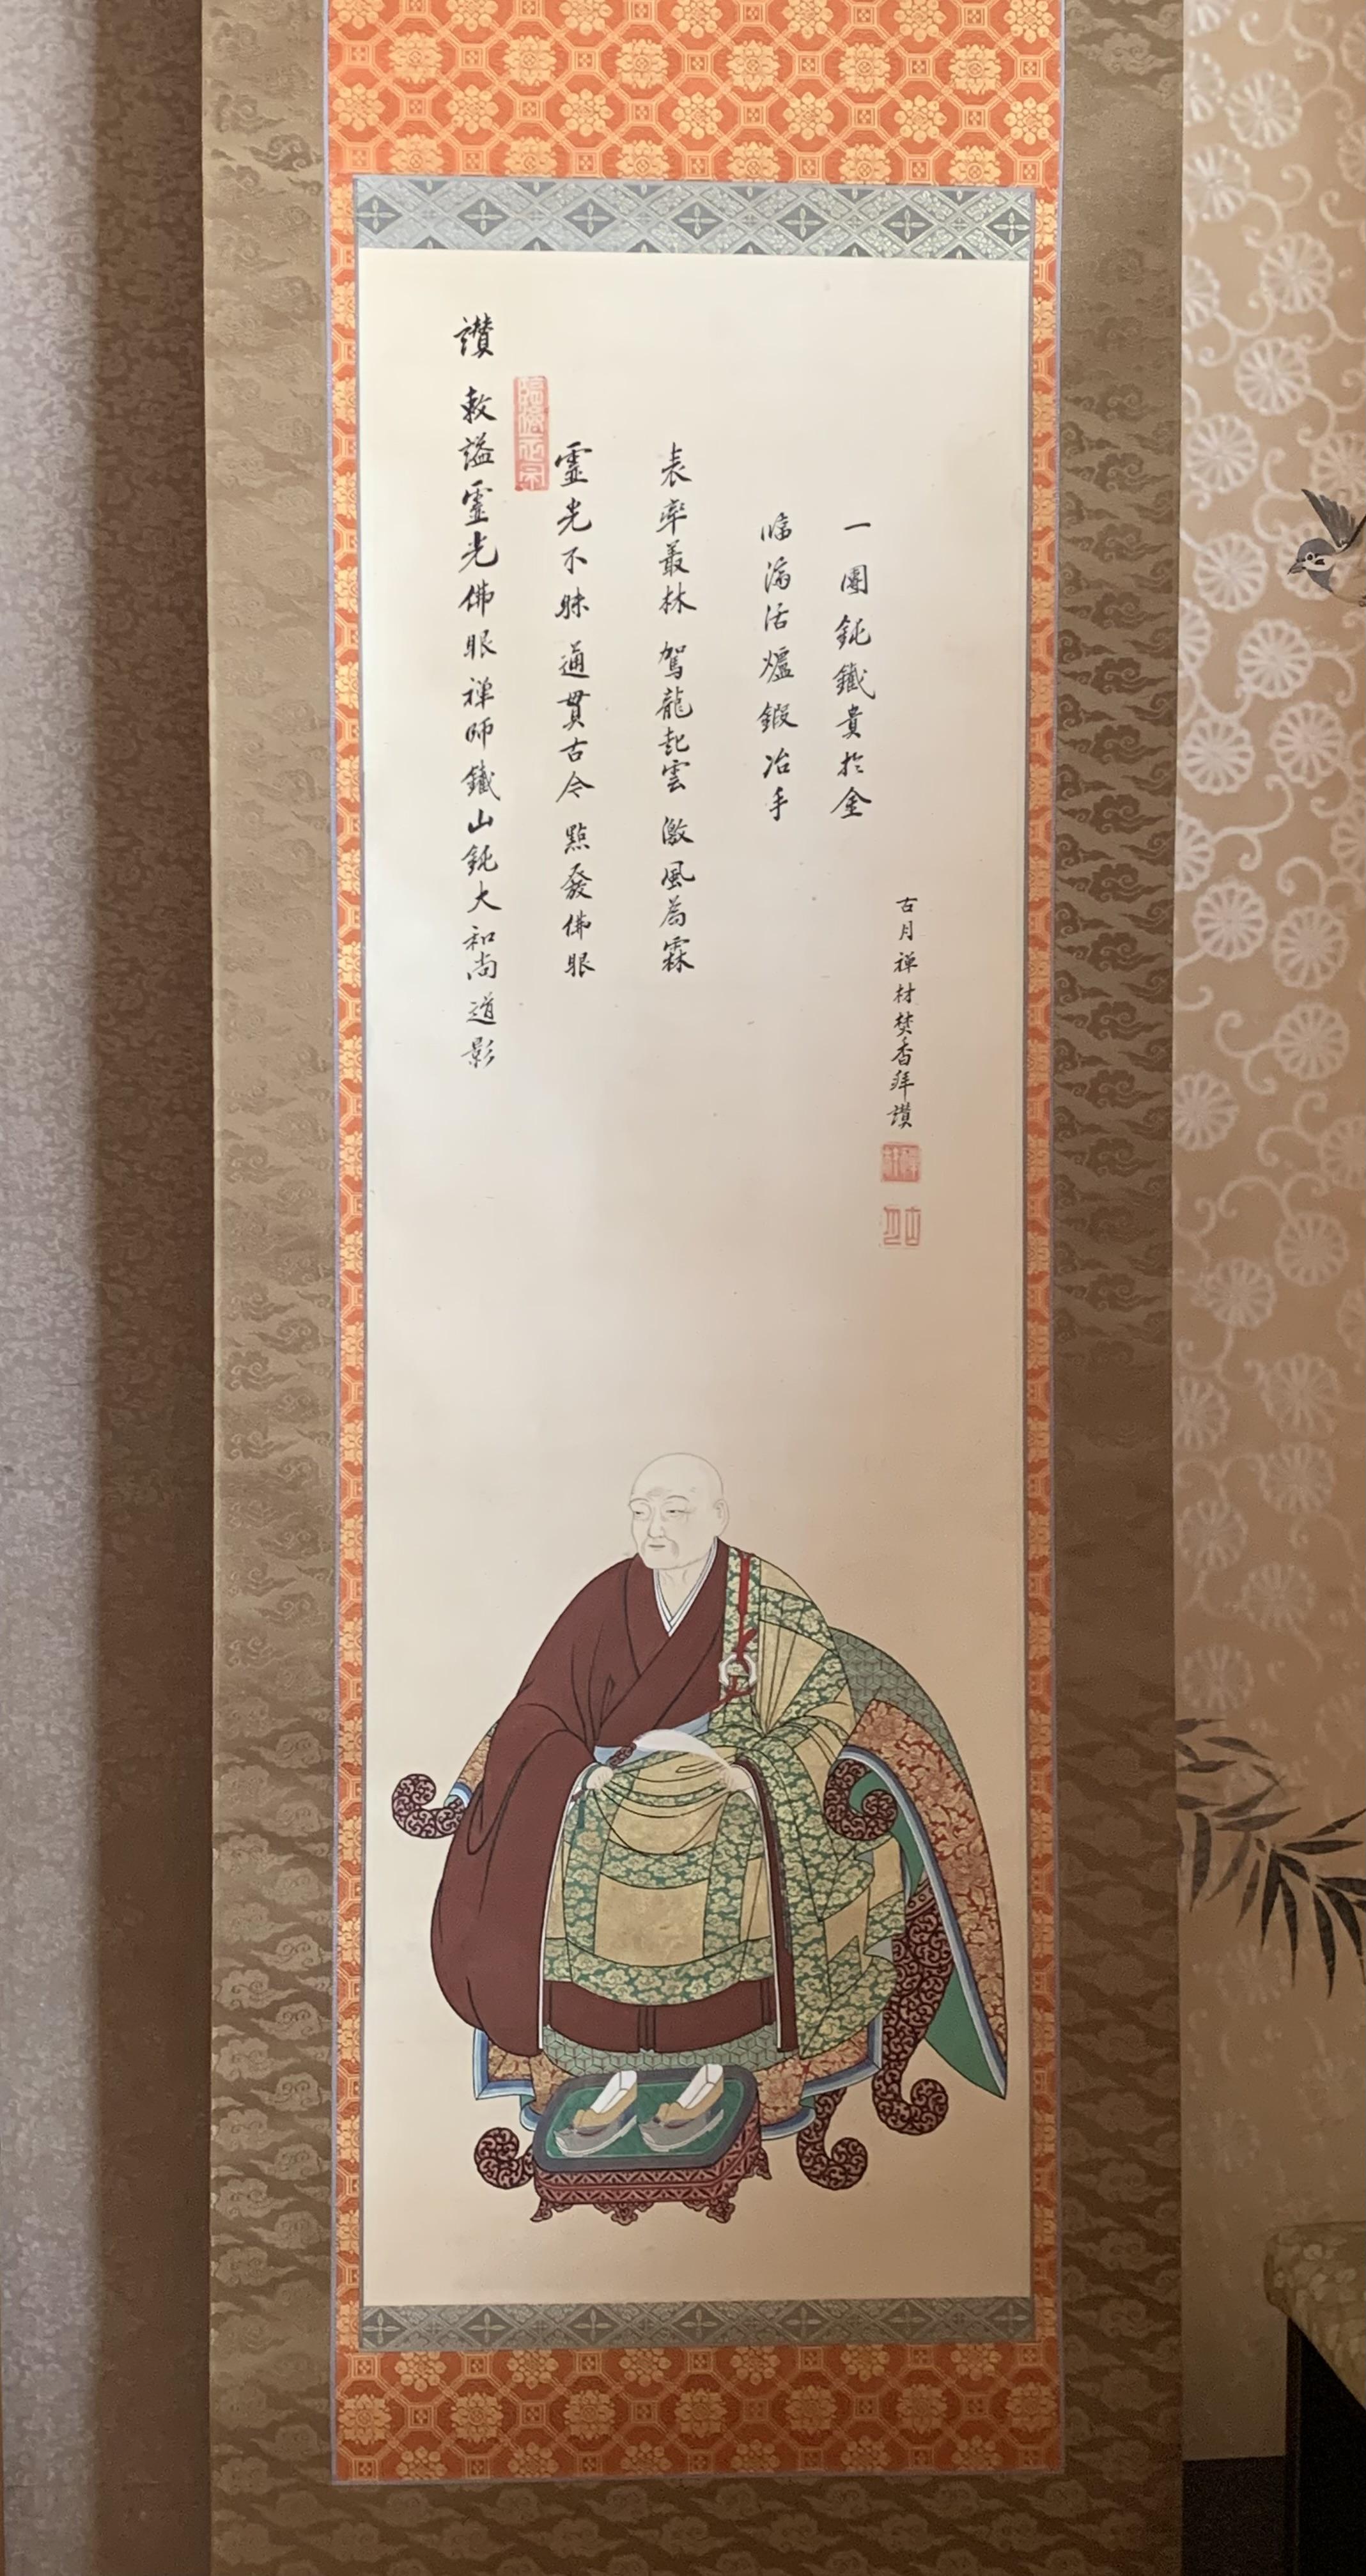 讚 敕謚霊光佛眼禅師鐵山鈍大和尚道影
臨濟正宗
霊光不昧 通貫古今 點發佛眼
表率叢林 駕龍起雲 激風為霖
臨濟活爐鍛冶手
一團鈍鐵貴於金
古月禅材焚香拜讚
禅材
古月